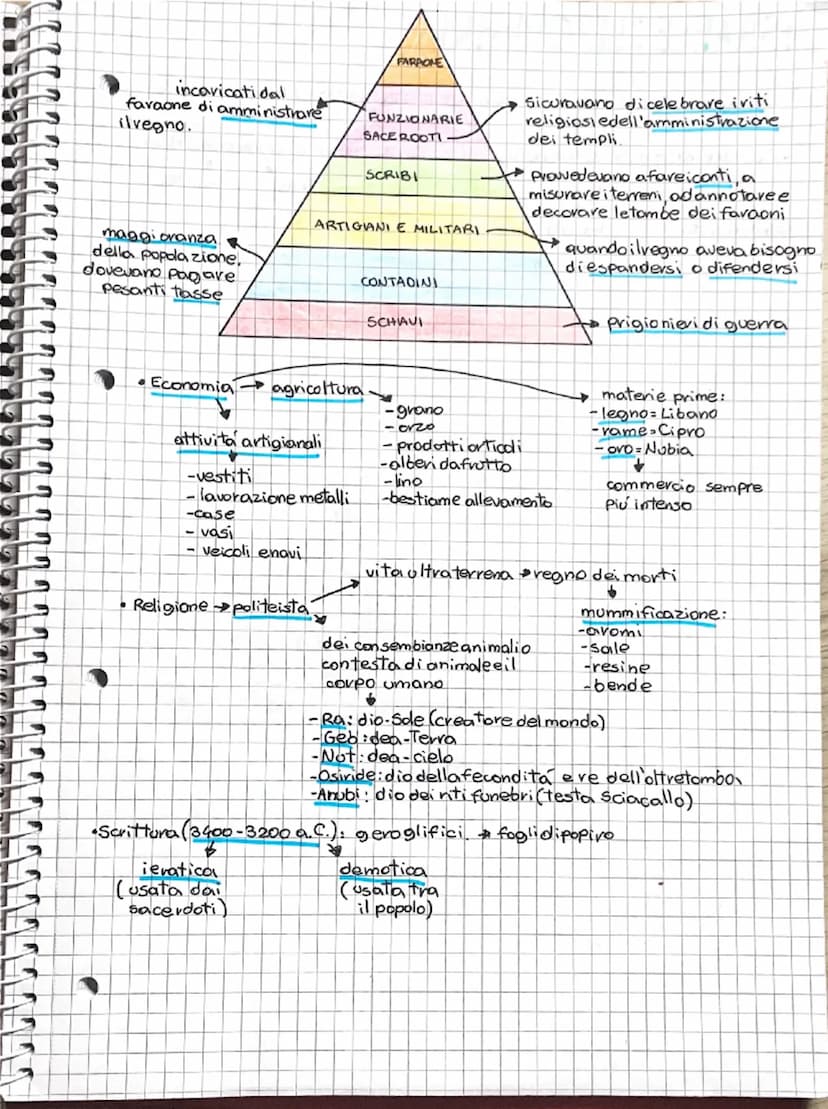 FARAONE
incaricati dal
faraone di amministrare
il regno.
FUNZIONARI E
SACERDOTI
si curavano di celebrare i riti
religiosi e dell'amministrazione
dei templi.
SCRIBI
provvedevano a fare i conti, a
misurare i terreni, ad annotare e
decorare le tombe dei faraoni
ARTIGIANI E MILITARI
quando il regno aveva bisogno
di espandersi o difendersi
maggioranza
della popolazione,
dovevano pagare
pesanti tasse
CONTADINI
SCHIAVI
prigionieri di guerra
• Economia → agricoltura
- grano
- orzo
- prodotti orticoli
- alberi da frutto
- lino
- bestiame allevamento
materie prime:
- legno = Libano
- rame = Cipro
- oro = Nubia
commercio sempre
più intenso
attività artigianali
- vestiti
- lavorazione metalli
- case
- vasi
- veicoli e navi
vita ultraterrena → regno dei morti
• Religione → politeista
mummificazione:
- aromi
- sale
- resine
- bende
dei con sembianze animali o
con testa di animale e il
corpo umano
- Ra: dio-Sole (creatore del mondo)
- Geb: dea-Terra
- Not: dea-cielo
- Osiride: dio della fecondità e re dell'oltretomba
- Anubi: dio dei riti funebri (testa sciacallo)
• Scrittura (3400-3200 a.C.): geroglifici. → fogli di papiro
ieratica
(usata dai
sacerdoti)
demotica
(usata tra
il popolo)